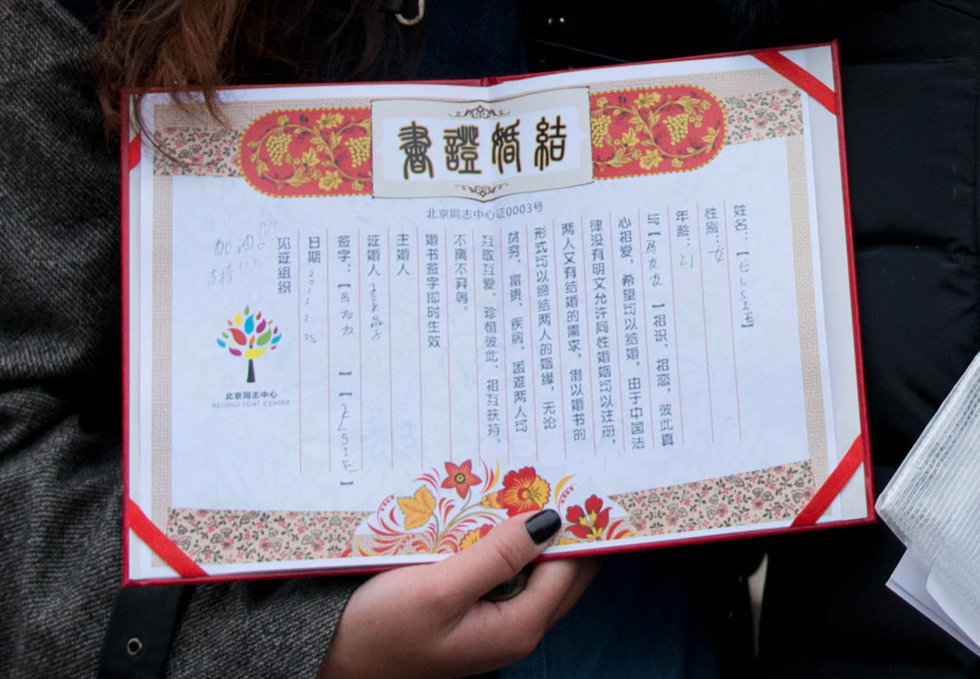 結婚證書
北京同志中心证0003号
姓名:【】
性别:女
年龄:21
与【】相识、相恋,彼此真
心相爱,希望可以结婚,由于中国法
律没有明文允许同性婚姻可以注册,
两人又有结婚的需求,借以婚书的
形式可以缔结两人的姻缘,无论
贫穷、富贵、疾病、困难两人可
互敬互爱、珍惜彼此、相互扶持、
不离不弃等。
婚书签字即时生效
主婚人
证婚人
签字:【】【】
日期
见证组织
加油!!!
支持
北京同志中心
BEIJING LGBT CENTER